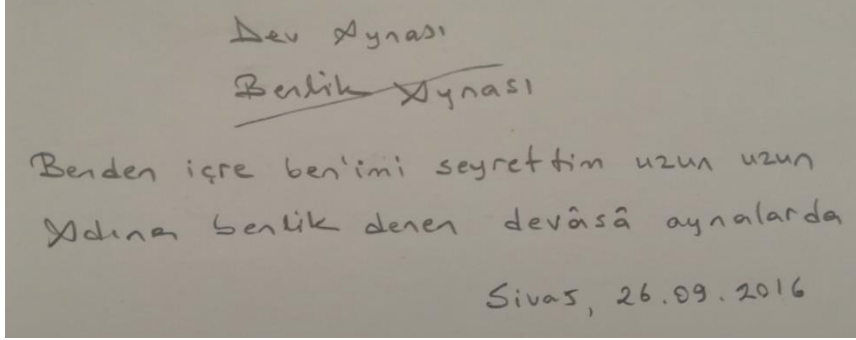 Dev Aynası
Benlik Aynası
Benden içre ben'imi seyrettim uzun uzun
Adına benlik denen devâsâ aynalarda
Sivas, 26.09.2016